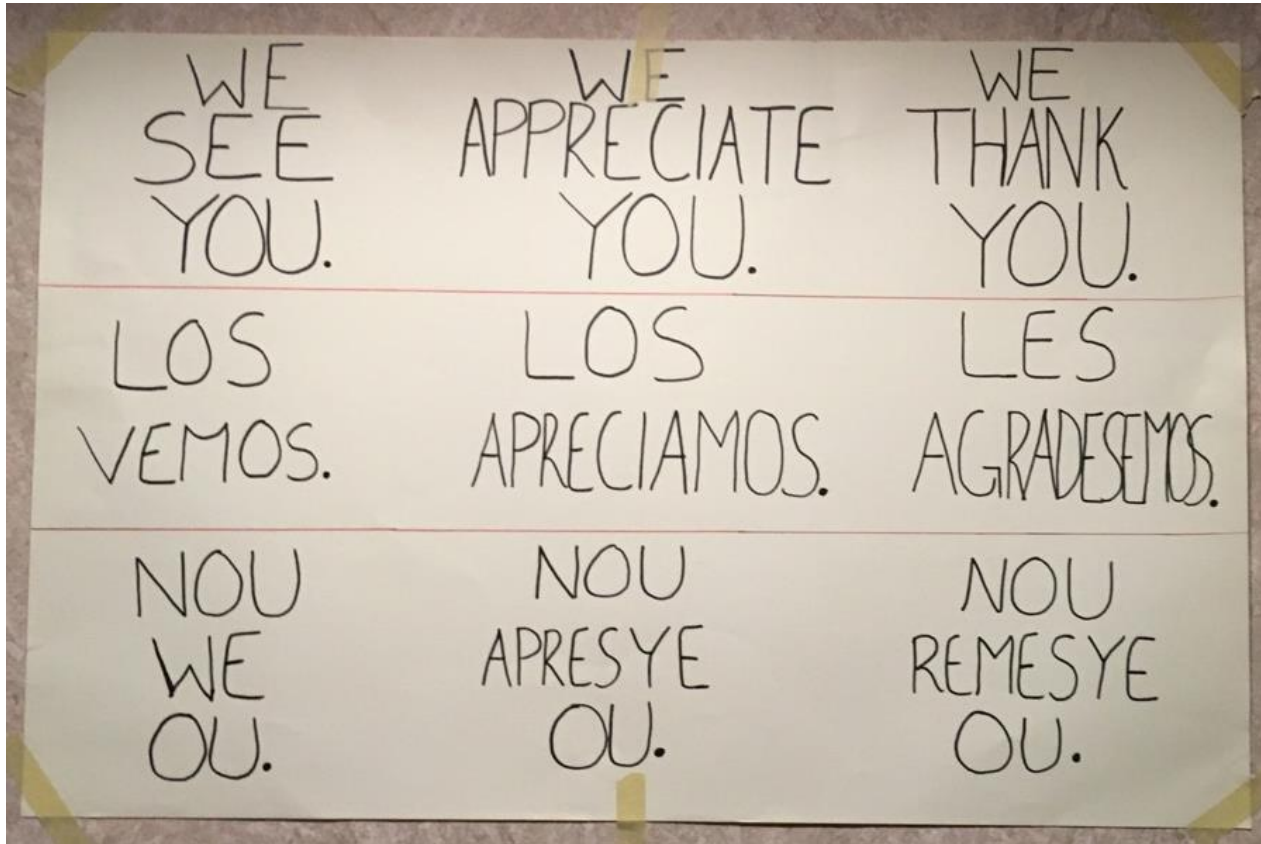 WE
SEE
YOU.
WE
APPRECIATE
YOU.
WE
THANK
YOU.
LOS
VEMOS.
LOS
APRECIAMOS.
LES
AGRADESEMOS.
NOU
WE
OU.
NOU
APRESYE
OU.
NOU
REMESYE
OU.